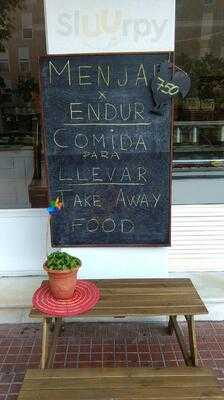 Sluurpy
MENJAR
x
ENDUR
COMIDA
PARA
LLEVAR
TAKE AWAY
FOOD
7'50€